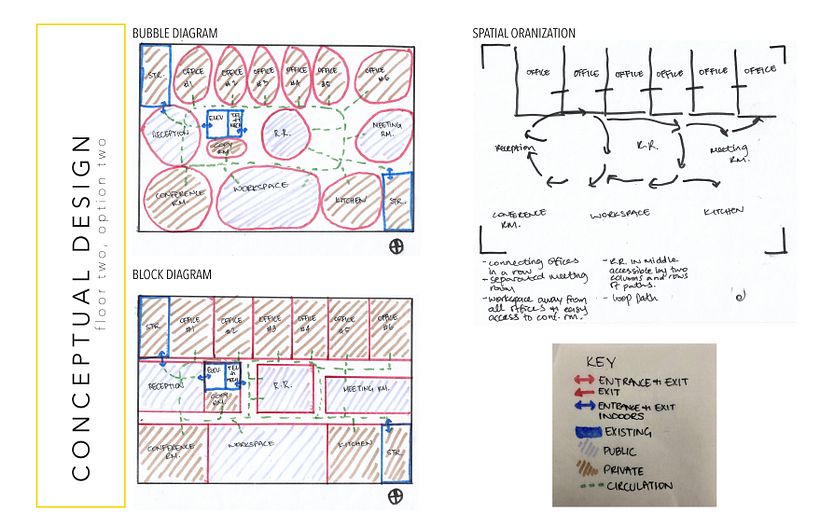 CONCEPTUAL DESIGN
floor two, option two
BUBBLE DIAGRAM
STR.
OFFICE
#1
OFFICE
#2
OFFICE
#3
OFFICE
#4
OFFICE
#5
OFFICE
#6
RECEPTION
ELEV
COPY
RM.
R.R.
MEETING
RM.
CONFERENCE
RM.
WORKSPACE
KITCHEN
STR.
BLOCK DIAGRAM
STR.
OFFICE
#1
OFFICE
#2
OFFICE
#3
OFFICE
#4
OFFICE
#5
OFFICE
#6
RECEPTION
ELEV.
COPY
RM.
R.R.
MEETING RM.
CONFERENCE
RM.
WORKSPACE
KITCHEN
STR.
SPATIAL ORANIZATION
OFFICE
OFFICE
OFFICE
OFFICE
OFFICE
OFFICE
Reception
R.R.
Meeting
RM.
CONFERENCE
RM.
WORKSPACE
KITCHEN
- connecting offices
in a row
- separated meeting
room
- workspace away from
all offices + easy
access to conf. rm.
- R.R. in middle
accessible by two
columns and rows
of paths.
- loop path
KEY
ENTRANCE + EXIT
EXIT
ENTRANCE + EXIT
INDOORS
EXISTING
PUBLIC
PRIVATE
CIRCULATION